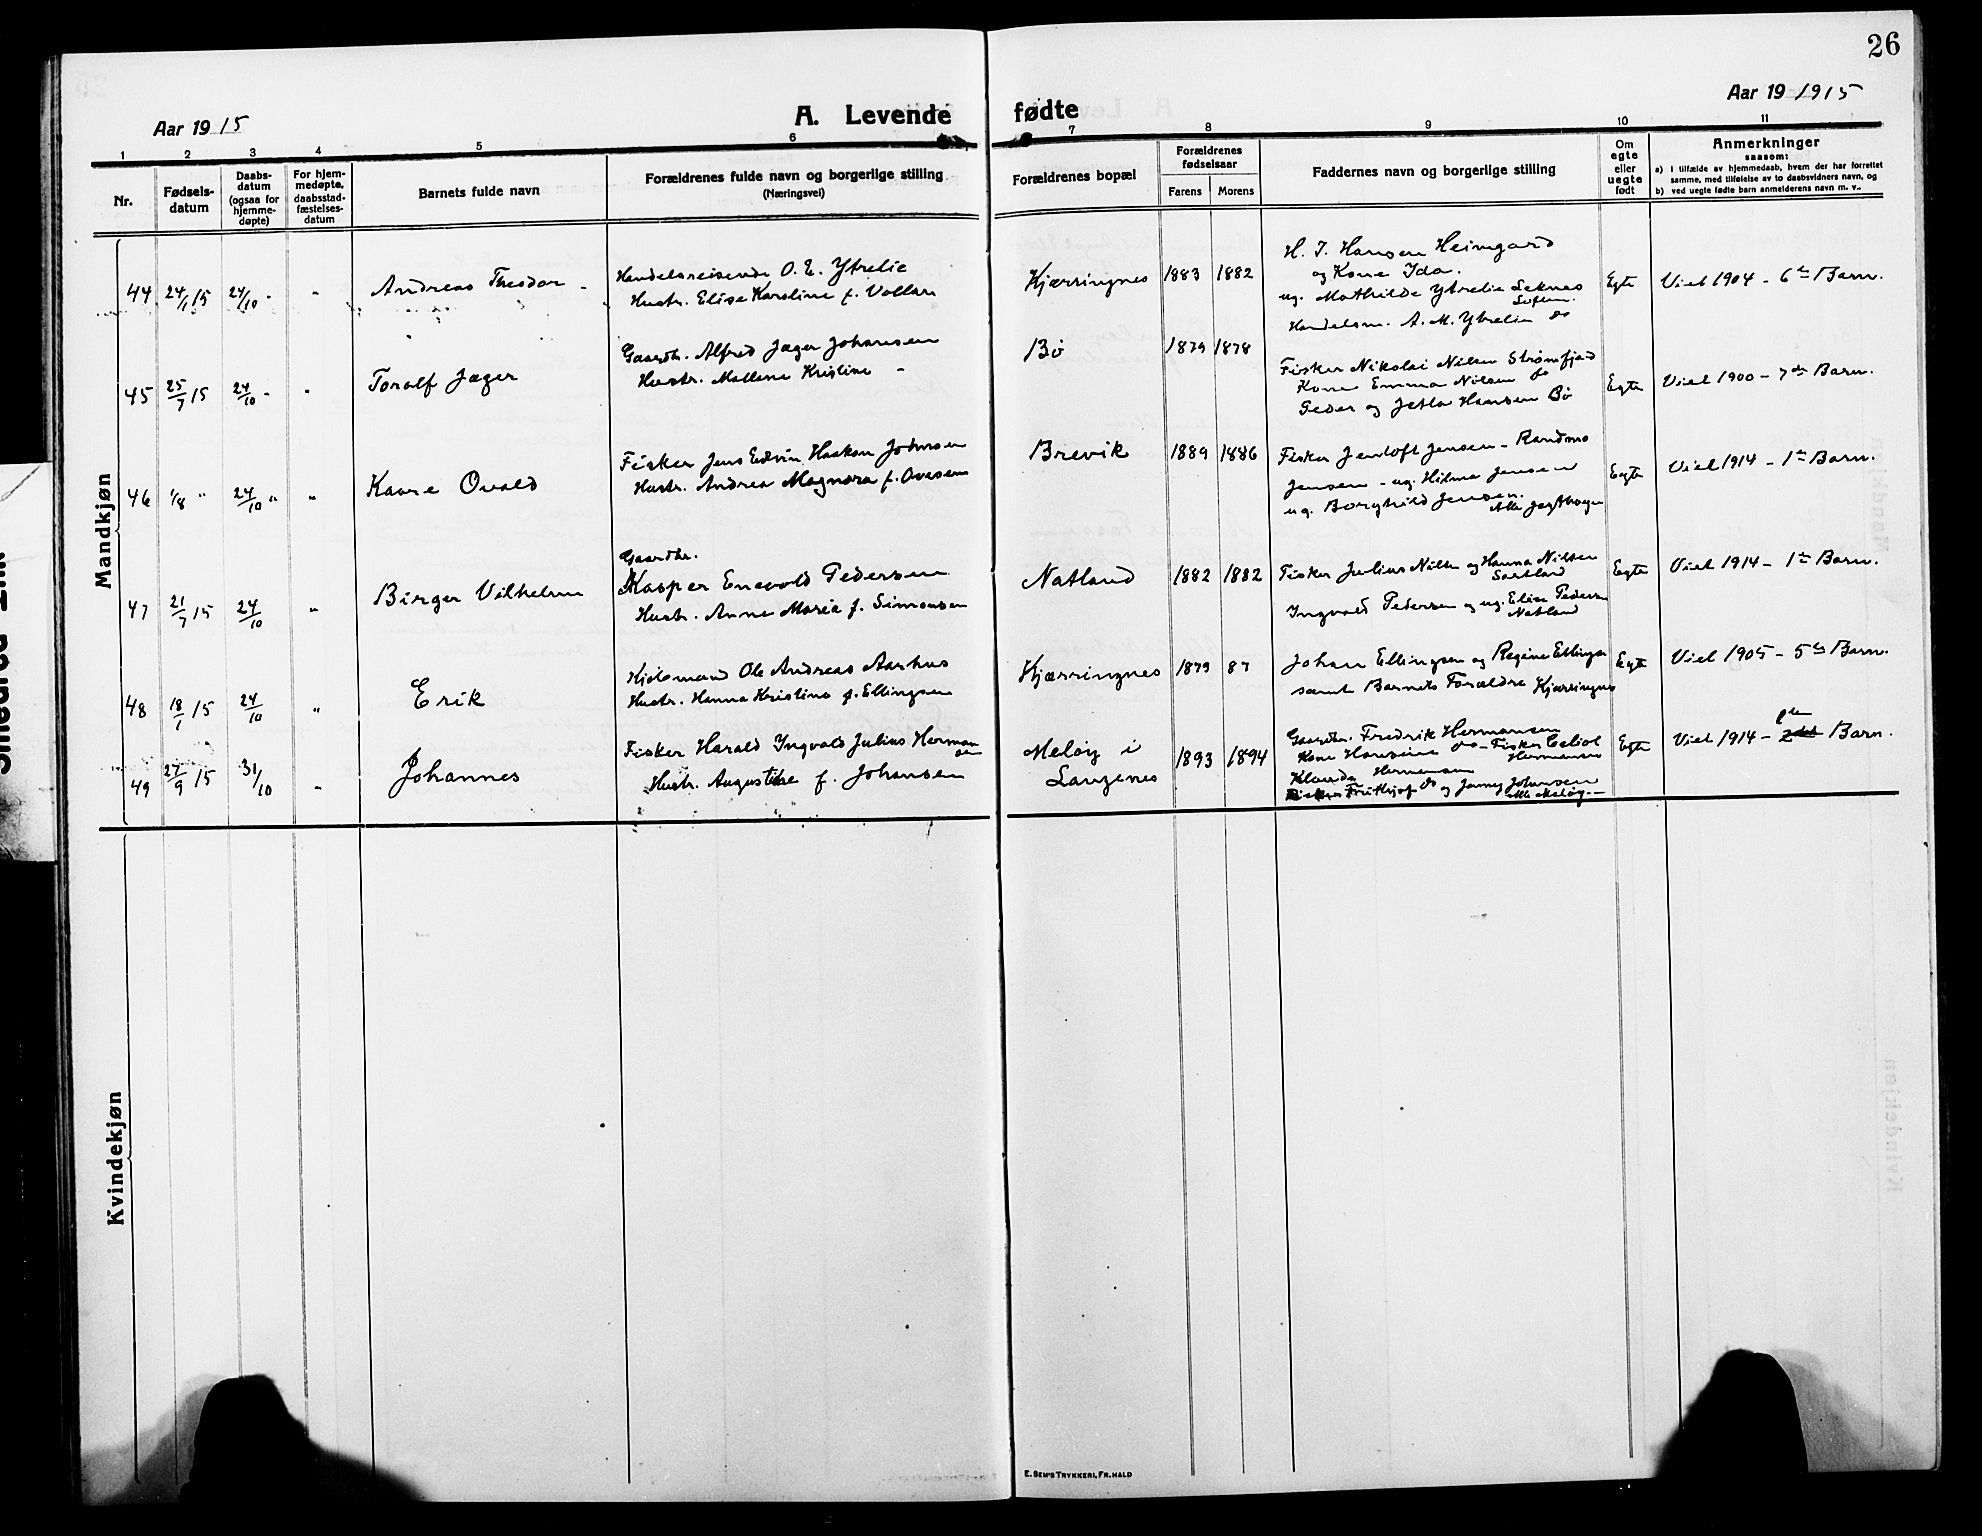 26
Aar 1915
A. Levende fødte
Aar 19 1915
1 2 3 4 5 6 7 8 9 10 11
Nr.
Fødsels-datum
Daabs-datum (ogsaa for hjemme-døpte)
For hjem-medøpte, daabsstad-fæstelses-datum
Barnets fulde navn
Forældrenes fulde navn og borgerlige stilling
(Næringsvei)
Forældrenes bopæl
Forældrenes fødselsaar
Farens Morens
Faddernes navn og borgerlige stilling
Om egte eller uegte født
Anmerkninger
saasom:
a) I tilfælde av hjemmedaab, hvem der har forrettet samme, med tilføielse av to daabsvidners navn, og
b) ved uegte fødte barn anmelderens navn m. v..
Mandkjøn
44 24/1 15 24/10 - " Andreas Theodor -
Handelsreisende O. E. Ytrelie
Hustr. Elise Karoline f. Vollan
Kjærringnes 1883 1882
H. J. Hansen Heimgard
og Kone Ida.
ug. Mathilde Ytrelie Leknes
Handelsm. A. M. Ytrelie do
Egte Viet 1904 - 6te Barn.
45 25/7 15 24/10 - " Toralf Jæger
Gaardbr. Alfred Jæger Johansen
Hustr. Mallene Kristine -
Bø 1879 1878
Fisker Nikolai Nilsen Strømfjord
Kone Emma Nilsen do
Peder og Jetta Hansen Bø
Egte Viet 1900 - 7de Barn.
46 1/8 " 24/10 " " Kaare Ovald
Fisker Jens Edvin Haakon Johnsen
Hustr. Andrea Magnora f. Ovesen
Brevik 1889 1886
Fisker Jentoft Jensen - Randine
Jensen - ug. Hilma Jensen
ug. Borghild Jensen.
Egte Viet 1914 - 1ste Barn.
47 21/7 15 24/10 " Birger Vilhelm
Gaardbr.
Kasper Enevold Pedersen
Hustr. Anne Maria f. Simonsen
Natland 1882 1882
Fisker Julius Nilsen og Hanna Nilsen
Sortland
Ingvald Pedersen og ug. Elise Pedersen
Natland
Egte Viet 1914 - 1ste Barn.
48 18/1 15 24/10 " Erik
Hjelsmand Ole Andreas Aarhus
Hustr. Hanna Kristine f. Ellingsen
Kjærringnes 1879 87
Johan Ellingsen og Regine Ellingsen
samt Barnets Forældre Kjærringnes
Egte Viet 1905 - 5te Barn.
49 27/9 15 31/10 " Johannes
Fisker Harald Ingvald Julius Herman
sen
Hustr. Augustine f. Johansen
Meløy i
Langenes
1893 1894
Gaardbr. Fredrik Hermansen
Kone Hansine do - Fisker
Hermansen
Klauda Hermansen
Fisker Frithjof do og Jenny Johnsen
Alle Meløy. -
Egte Viet 1914 - 1ste Barn.
Kvindekjøn
E. SEM'S TRYKKERI, FR.HALD